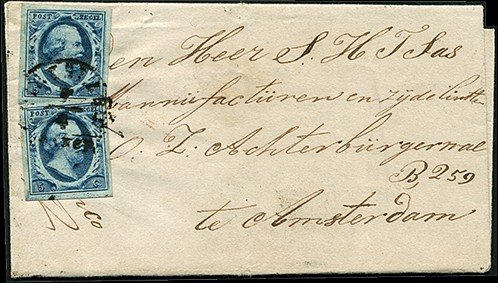 POST ZEGEL
5 C
POST ZEGEL
5 C
Den Heer S. H. T Sas
Mannufacturen en zyde linten
O. Z. Achterburgerwal
B, 259
te Amsterdam